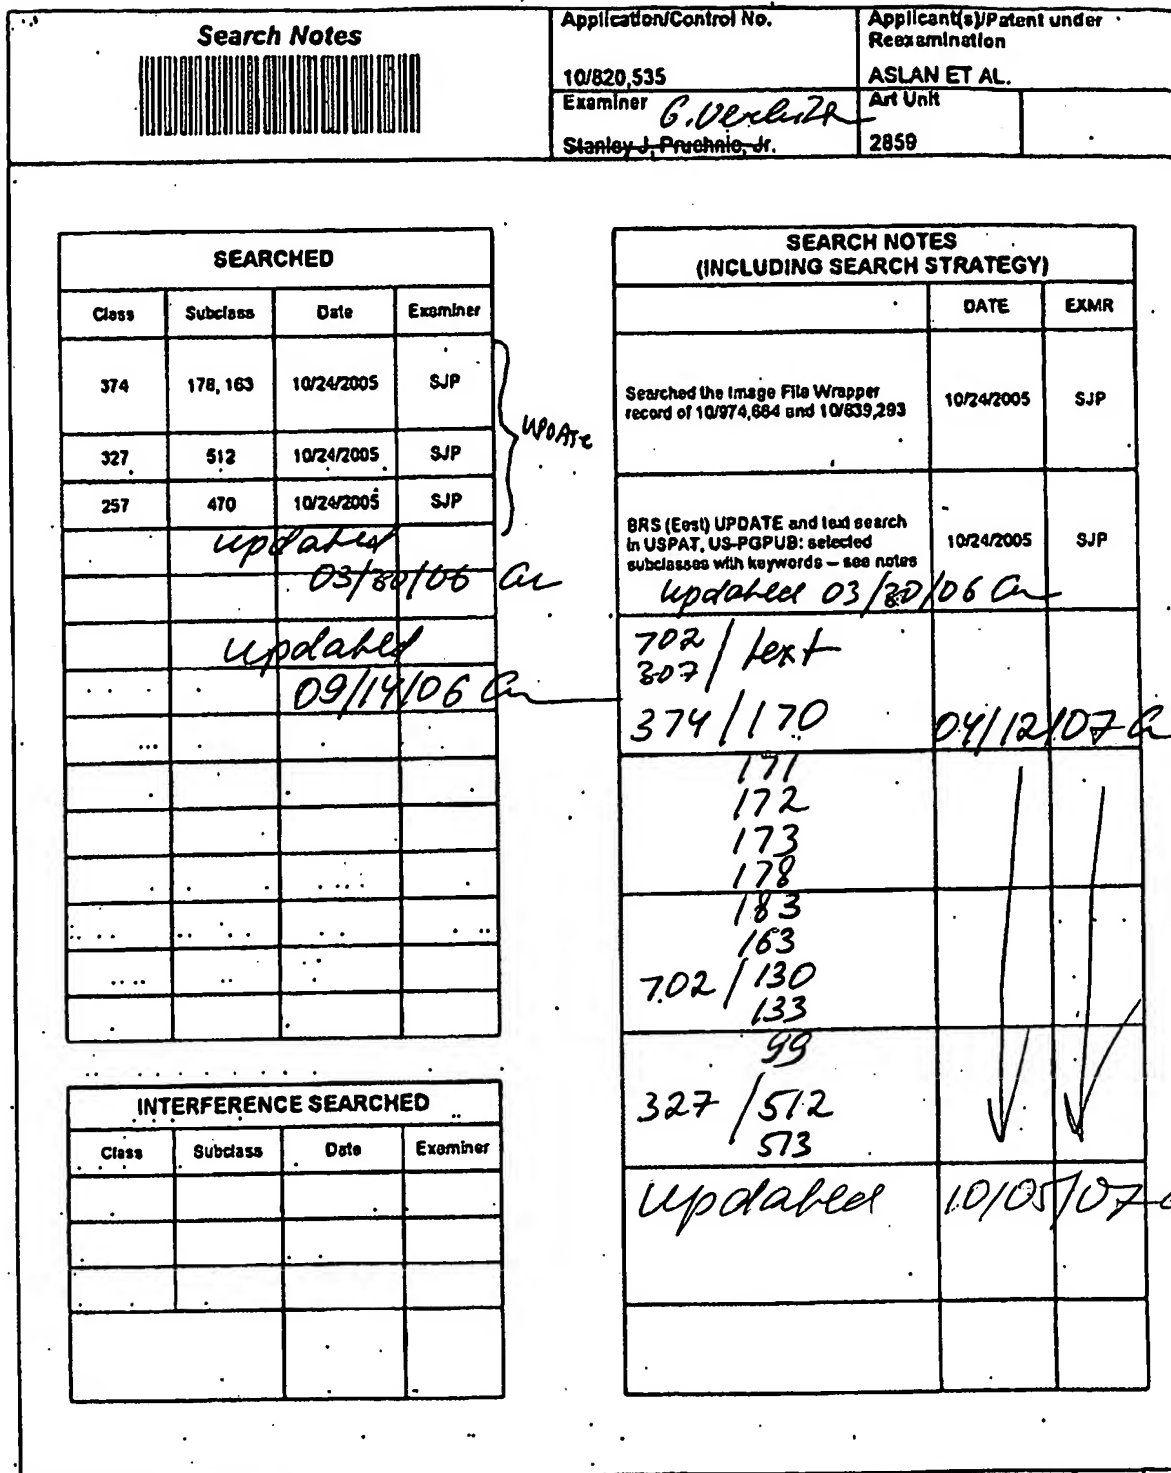 Search Notes
Application/Control No.
10/820,535
Applicant(s)/Patent under
Reexamination
ASLAN ET AL.
Examiner
G.
Stanley J. Pruchnic, Jr.
Art Unit
2859
SEARCHED
Class Subclass Date Examiner
374 178, 163 10/24/2005 SJP
327 512 10/24/2005 SJP
257 470 10/24/2005 SJP
UPDATE
updated
03/30/06
updated
09/14/06
INTERFERENCE SEARCHED
Class Subclass Date Examiner
SEARCH NOTES
(INCLUDING SEARCH STRATEGY)
DATE EXMR
Searched the Image File Wrapper
record of 10/974,664 and 10/639,293 10/24/2005 SJP
BRS (East) UPDATE and text search
in USPAT, US-PGPUB: selected
subclasses with keywords – see notes 10/24/2005 SJP
updated 03/30/06
702
307 / text
374/170 04/12/07
171
172
173
178
183
163
702/130
133
99
327/512
513
updated 10/05/07